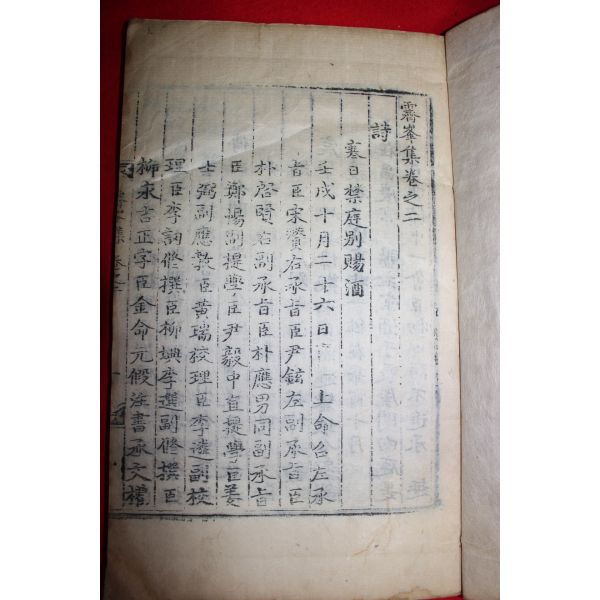 霽峯集卷之二
詩
寒日禁庭別賜酒
壬戌十月二十六日 上命召左承
旨臣宋贊右承旨臣尹鉉左副承旨臣
朴啓賢右副承旨臣朴應男同副承旨
臣鄭惕副提學臣尹毅中直提學臣姜
士弼副應敎臣黃瑞校理臣李遴副校
理臣李訥修撰臣柳㙉李選副修撰臣
柳永吉正字臣金命元假注書承文權